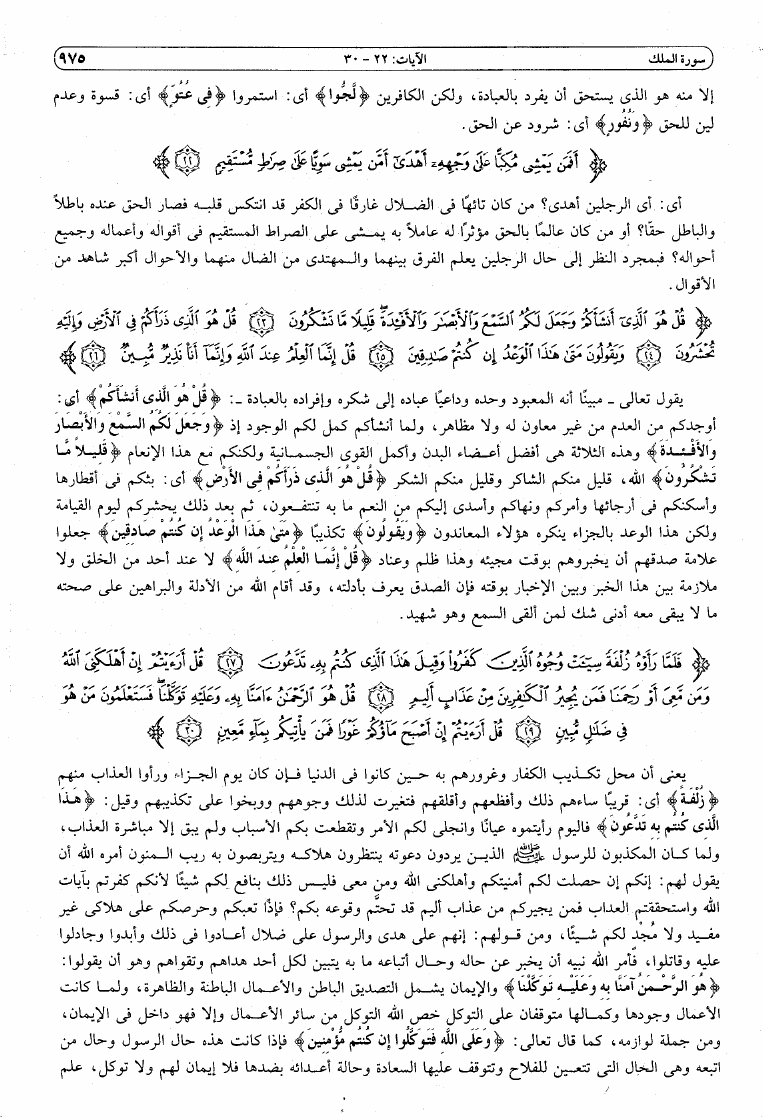 سورة الملك الآيات: ٢٢ - ٣٠ ٩٧٥
إلا منه هو الذى يستحق أن يفرد بالعبادة، ولكن الكافرين ﴿لَّجُوا﴾ أى: استمروا ﴿فِي عُتُوٍّ﴾ أى: قسوة وعدم
لين للحق ﴿وَنُفُورٍ﴾ أى: شرود عن الحق.
﴿ أَفَمَن يَمْشِي مُكِبًّا عَلَىٰ وَجْهِهِۦٓ أَهْدَىٰٓ أَمَّن يَمْشِي سَوِيًّا عَلَىٰ صِرَٰطٍ مُّسْتَقِيمٍ ﴿٢٢﴾ ﴾
أى: أى الرجلين أهدى؟ من كان تائهًا فى الضلال غارقًا فى الكفر قد انتكس قلبه فصار الحق عنده باطلاً
والباطل حقًا؟ أو من كان عالمًا بالحق مؤثرًا له عاملاً به يمشى على الصراط المستقيم فى أقواله وأعماله وجميع
أحواله؟ فبمجرد النظر إلى حال الرجلين يعلم الفرق بينهما والمهتدى من الضال منهما والأحوال أكبر شاهد من
الأقوال.
﴿ قُلْ هُوَ ٱلَّذِىٓ أَنشَأَكُمْ وَجَعَلَ لَكُمُ ٱلسَّمْعَ وَٱلْأَبْصَٰرَ وَٱلْأَفْـِٔدَةَ ۖ قَلِيلًا مَّا تَشْكُرُونَ ﴿٢٣﴾ قُلْ هُوَ ٱلَّذِى ذَرَأَكُمْ فِى ٱلْأَرْضِ وَإِلَيْهِ
تُحْشَرُونَ ﴿٢٤﴾ وَيَقُولُونَ مَتَىٰ هَٰذَا ٱلْوَعْدُ إِن كُنتُمْ صَٰدِقِينَ ﴿٢٥﴾ قُلْ إِنَّمَا ٱلْعِلْمُ عِندَ ٱللَّهِ وَإِنَّمَآ أَنَا۠ نَذِيرٌ مُّبِينٌ ﴿٢٦﴾ ﴾
يقول تعالى ـ مبينًا أنه المعبود وحده وداعيًا عباده إلى شكره وإفراده بالعبادة ـ: ﴿قُلْ هُوَ الَّذِي أَنشَأَكُمْ﴾ أى:
أوجدكم من العدم من غير معاون له ولا مظاهر، ولما أنشأكم كمل لكم الوجود إذ ﴿وَجَعَلَ لَكُمُ السَّمْعَ وَالأَبْصَارَ
وَالأَفْئِدَةَ﴾ وهذه الثلاثة هى أفضل أعضاء البدن وأكمل القوى الجسمانية ولكنكم مع هذا الإنعام ﴿قَلِيلاً مَّا
تَشْكُرُونَ﴾ الله، قليل منكم الشاكر وقليل منكم الشكر ﴿قُلْ هُوَ الَّذِي ذَرَأَكُمْ فِي الأَرْضِ﴾ أى: بثكم فى أقطارها
وأسكنكم فى أرجائها وأمركم ونهاكم وأسدى إليكم من النعم ما به تنتفعون، ثم بعد ذلك يحشركم ليوم القيامة
ولكن هذا الوعد بالجزاء ينكره هؤلاء المعاندون ﴿وَيَقُولُونَ﴾ تكذيبًا ﴿مَتَىٰ هَذَا الْوَعْدُ إِن كُنتُمْ صَادِقِينَ﴾ جعلوا
علامة صدقهم أن يخبروهم بوقت مجيئه وهذا ظلم وعناد ﴿قُلْ إِنَّمَا الْعِلْمُ عِندَ اللَّهِ﴾ لا عند أحد من الخلق ولا
ملازمة بين هذا الخبر وبين الإخبار بوقته فإن الصدق يعرف بأدلته، وقد أقام الله من الأدلة والبراهين على صحته
ما لا يبقى معه أدنى شك لمن ألقى السمع وهو شهيد.
﴿ فَلَمَّا رَأَوْهُ زُلْفَةً سِيٓـَٔتْ وُجُوهُ ٱلَّذِينَ كَفَرُوا۟ وَقِيلَ هَٰذَا ٱلَّذِى كُنتُم بِهِۦ تَدَّعُونَ ﴿٢٧﴾ قُلْ أَرَءَيْتُمْ إِنْ أَهْلَكَنِىَ ٱللَّهُ
وَمَن مَّعِىَ أَوْ رَحِمَنَا فَمَن يُجِيرُ ٱلْكَٰفِرِينَ مِنْ عَذَابٍ أَلِيمٍ ﴿٢٨﴾ قُلْ هُوَ ٱلرَّحْمَٰنُ ءَامَنَّا بِهِۦ وَعَلَيْهِ تَوَكَّلْنَا ۖ فَسَتَعْلَمُونَ مَنْ هُوَ
فِى ضَلَٰلٍ مُّبِينٍ ﴿٢٩﴾ قُلْ أَرَءَيْتُمْ إِنْ أَصْبَحَ مَآؤُكُمْ غَوْرًا فَمَن يَأْتِيكُم بِمَآءٍ مَّعِينٍ ﴿٣٠﴾ ﴾
يعنى أن محل تكذيب الكفار وغرورهم به حين كانوا فى الدنيا فإن كان يوم الجزاء ورأوا العذاب منهم
﴿زُلْفَةً﴾ أى: قريبًا ساءهم ذلك وأفظعهم وأقلقهم فتغيرت لذلك وجوههم ووبخوا على تكذيبهم وقيل: ﴿هَذَا
الَّذِي كُنتُم بِهِ تَدَّعُونَ﴾ فاليوم رأيتموه عيانًا وانجلى لكم الأمر وتقطعت بكم الأسباب ولم يبق إلا مباشرة العذاب،
ولما كان المكذبون للرسول ﷺ الذين يردون دعوته ينتظرون هلاكه ويتربصون به ريب المنون أمره الله أن
يقول لهم: إنكم إن حصلت لكم أمنيتكم وأهلكنى الله ومن معى فليس ذلك بنافع لكم شيئًا لأنكم كفرتم بآيات
الله واستحققتم العذاب فمن يجيركم من عذاب أليم قد تحتَّم وقوعه بكم؟ فإذًا تعبكم وحرصكم على هلاكى غير
مفيد ولا مُجْد لكم شيئًا، ومن قولهم: إنهم على هدى والرسول على ضلال أعادوا فى ذلك وأبدوا وجادلوا
عليه وقاتلوا، فأمر الله نبيه أن يخبر عن حاله وحال أتباعه ما به يتبين لكل أحد هداهم وتقواهم وهو أن يقولوا:
﴿هُوَ الرَّحْمَنُ آمَنَّا بِهِ وَعَلَيْهِ تَوَكَّلْنَا﴾ والإيمان يشمل التصديق الباطن والأعمال الباطنة والظاهرة، ولما كانت
الأعمال وجودها وكمالها متوقفان على التوكل خص الله التوكل من سائر الأعمال وإلا فهو داخل فى الإيمان،
ومن جملة لوازمه، كما قال تعالى: ﴿وَعَلَى اللَّهِ فَتَوَكَّلُوا إِن كُنتُم مُّؤْمِنِينَ﴾ فإذا كانت هذه حال الرسول وحال من
اتبعه وهى الحال التى تتعين للفلاح وتتوقف عليها السعادة وحالة أعدائه بضدها فلا إيمان لهم ولا توكل، علم